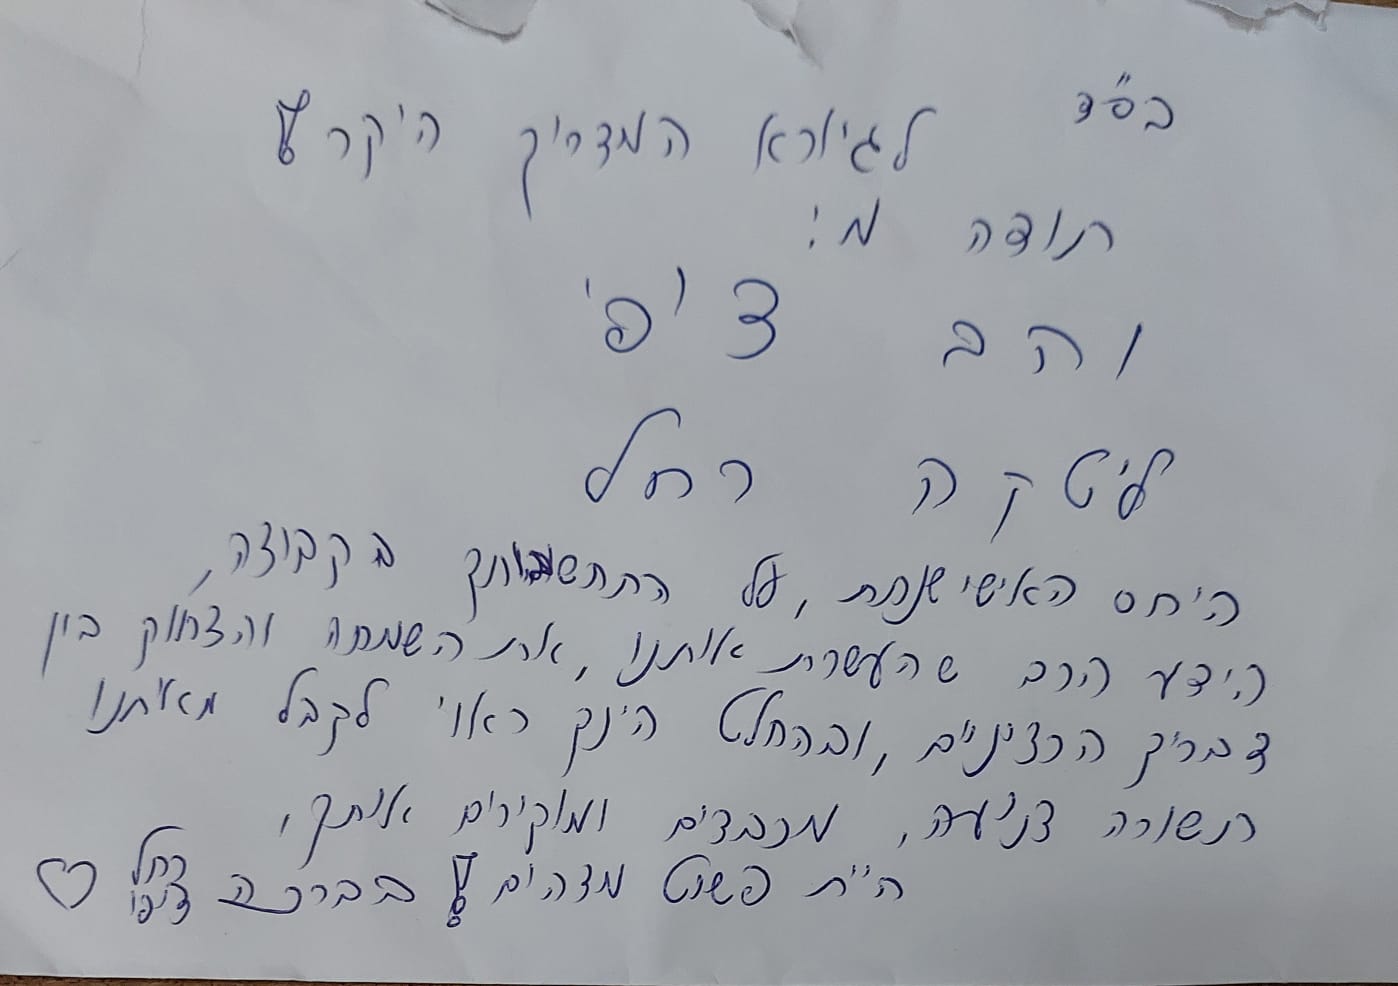 בס"ד
לגיורא המדריך היקר!
תודה מ:
והב ציפי
ליטקה רחל
היחס האישי שנתת, על התחשבותך בקבוצה,
הידע הרב שהעשרת אותנו, את השמחה והצחוק בין
דבריך הרציניים, ובהחלט הינך ראוי לקבל מאיתנו
תשורה צנועה, מכבדים ומוקירים אותך,
היית פשוט מדהים! בברכה רחל ציפי